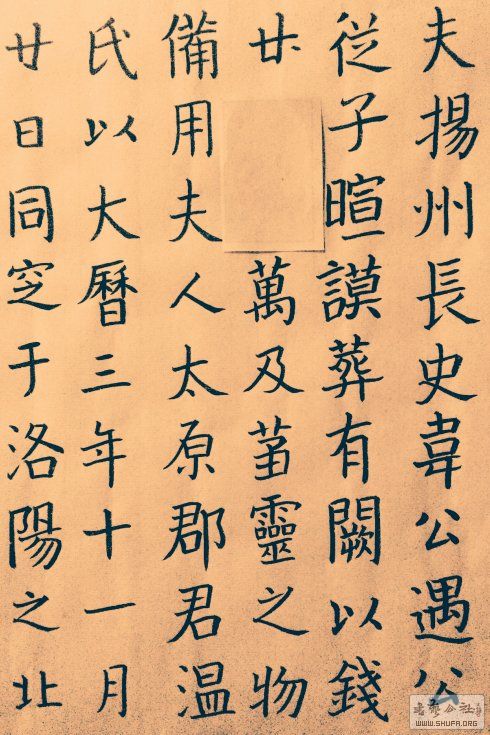 夫揚州長史韋公遇公
從子暄謨葬有闕以錢
廿萬及茵靈之物
備用夫人太原郡君温
氏以大曆三年十一月
廿日同窆于洛陽之北
WWW.SHUFA.ORG